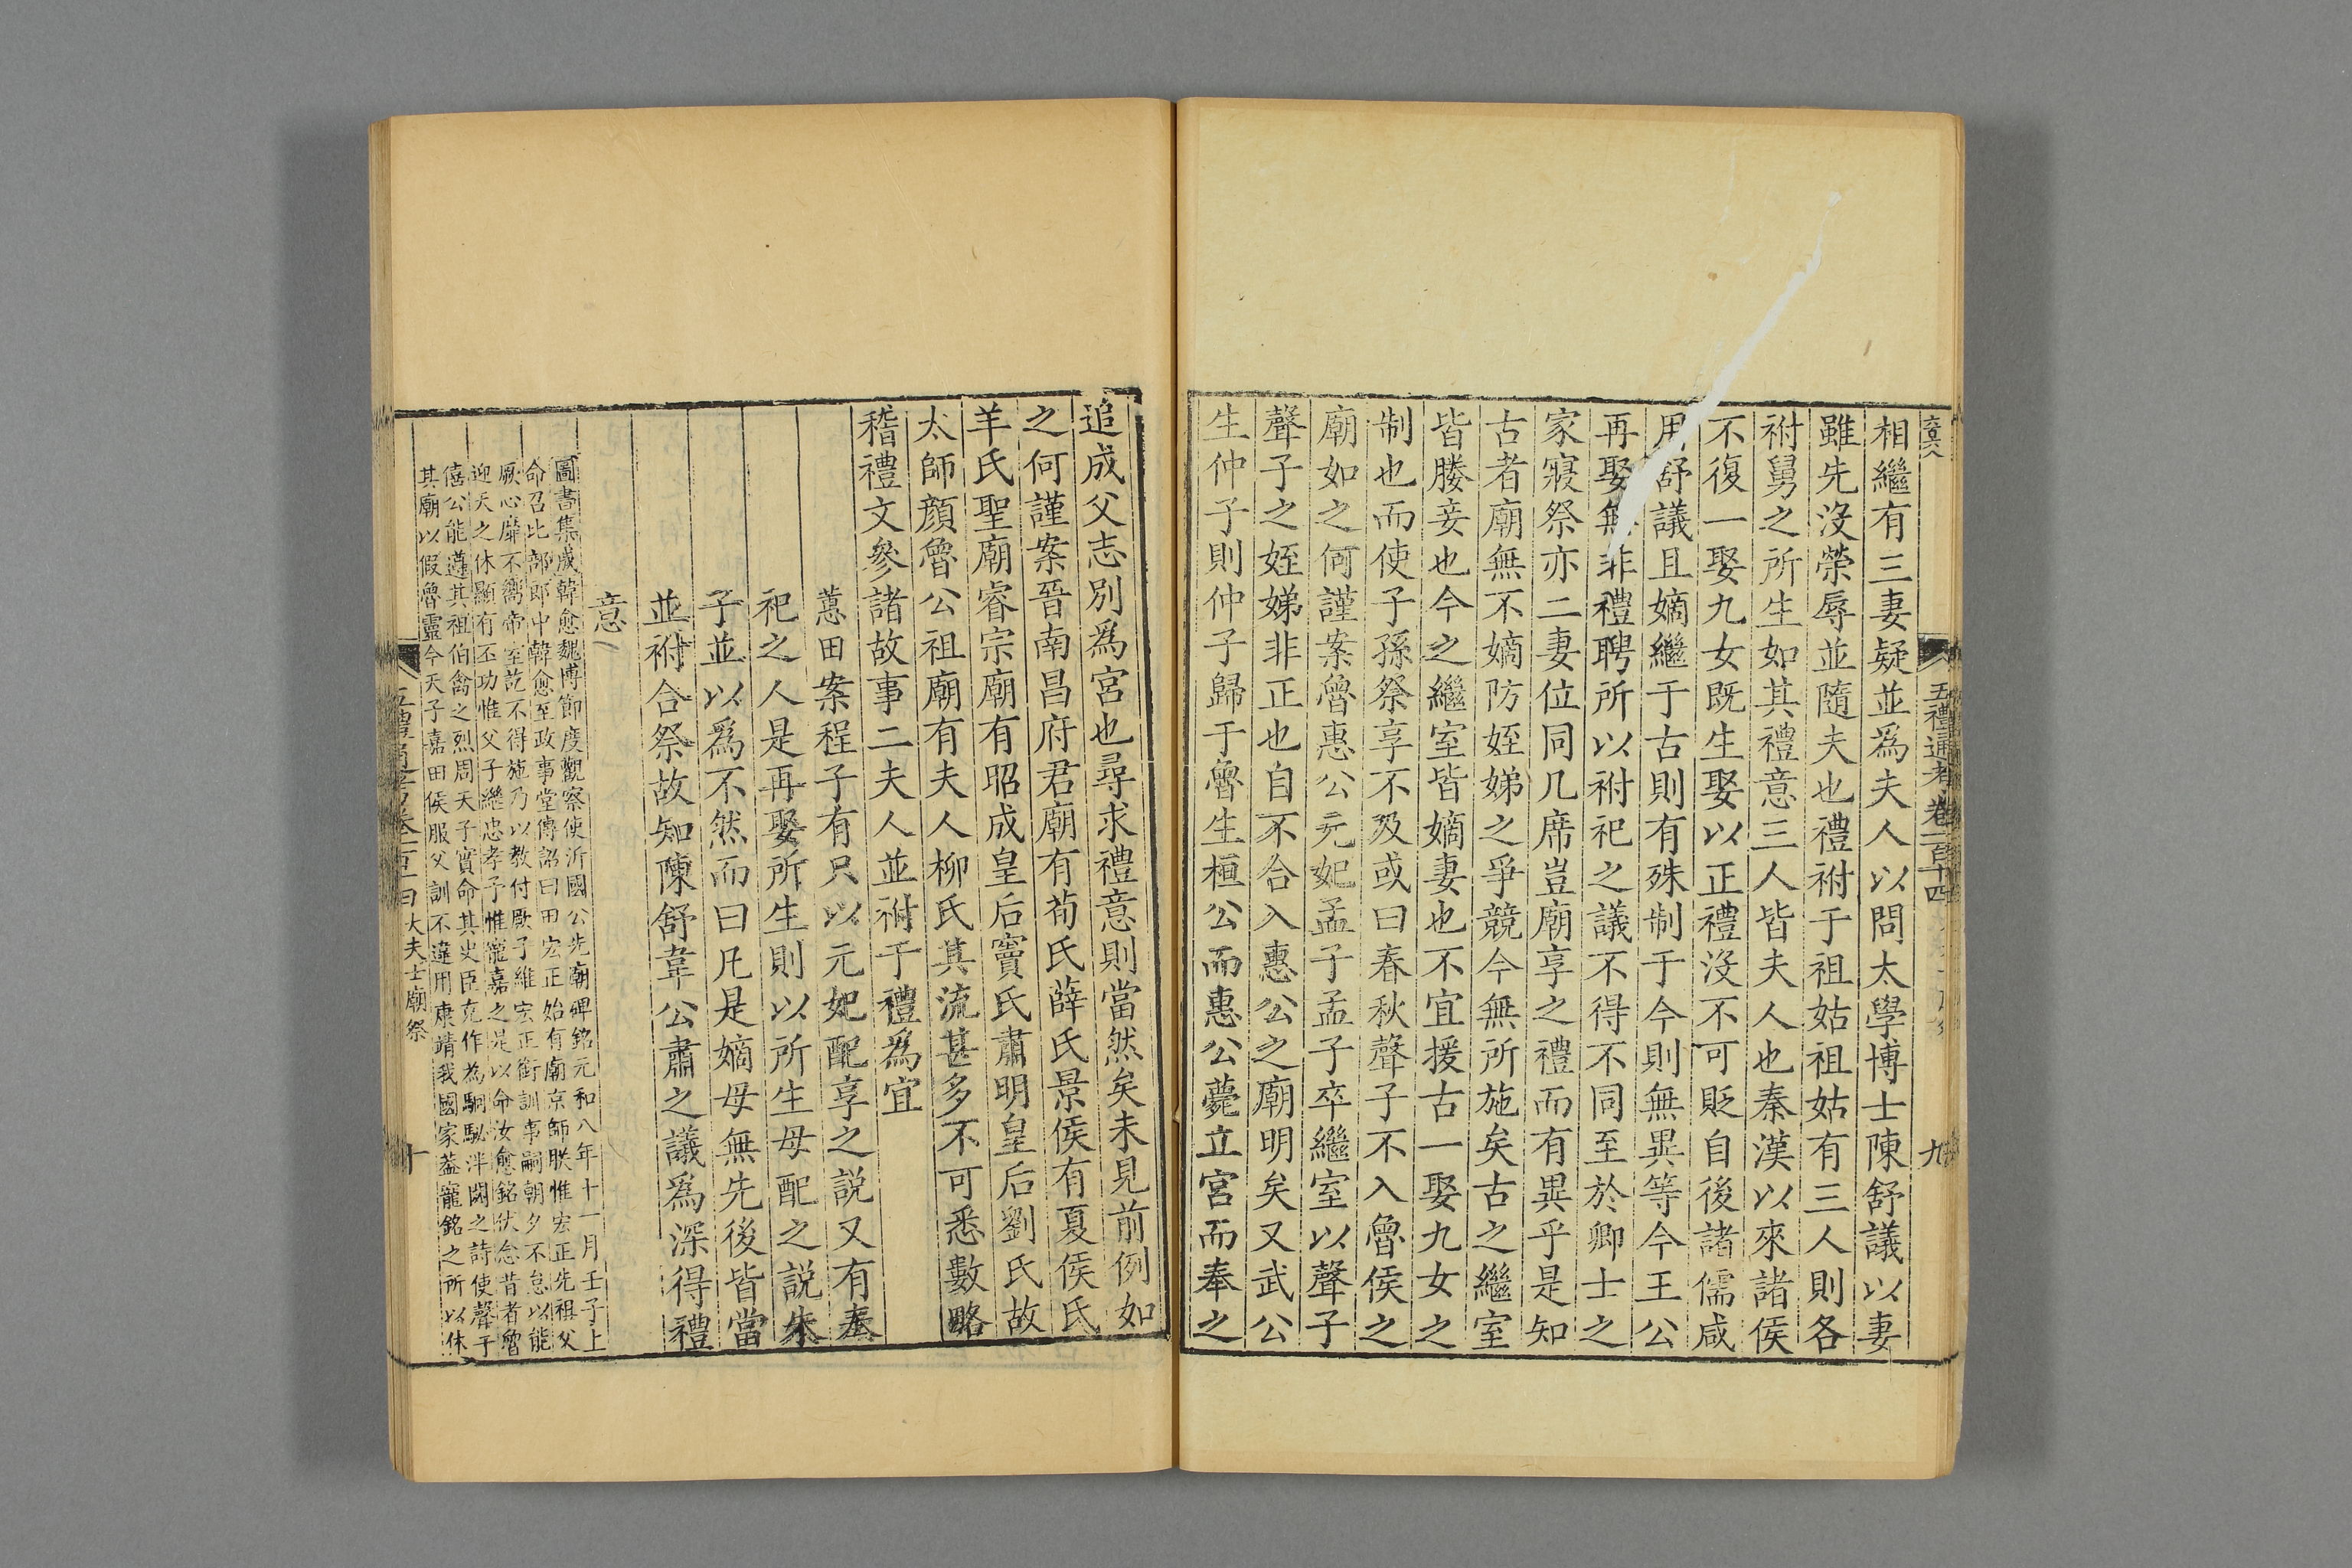 五禮通考卷一百十四
九
相繼有三妻疑並爲夫人以問太學博士陳舒議以妻
雖先沒榮辱並隨夫也禮祔于祖姑祖姑有三人則各
祔舅之所生如其禮意三人皆夫人也秦漢以來諸侯
不復一娶九女既生娶以正禮沒不可貶自後諸儒咸
用舒議且嫡繼于古則有殊制于今則無異等今王公
再娶無非禮聘所以祔祀之議不得不同至於卿士之
家寢祭亦二妻位同几席豈廟享之禮而有異乎是知
古者廟無不嫡防姪娣之爭競今無所施矣古之繼室
皆媵妾也今之繼室皆嫡妻也不宜援古一娶九女之
制也而使子孫祭享不及或曰春秋聲子不入魯侯之
廟如之何謹案魯惠公元妃孟子孟子卒繼室以聲子
聲子之姪娣非正也自不合入惠公之廟明矣又武公
生仲子則仲子歸于魯生桓公而惠公薨立宮而奉之
追成父志別爲宮也尋求禮意則當然矣未見前例如
之何謹案晉南昌府君廟有荀氏薛氏景侯有夏侯氏
羊氏聖廟睿宗廟有昭成皇后竇氏肅明皇后劉氏故
太師顏魯公祖廟有夫人柳氏其流甚多不可悉數略
稽禮文參諸故事二夫人並祔于禮爲宜
蕙田案程子有只以元妃配享之說又有奉
祀之人是再娶所生則以所生母配之說朱
子並以爲不然而曰凡是嫡母無先後皆當
並祔合祭故知陳舒韋公肅之議爲深得禮
意
圖書集成韓愈魏博節度觀察使沂國公先廟碑銘元和八年十一月壬子上
命召比部郎中韓愈至政事堂傳詔曰田宏正始有廟京師朕惟宏正先祖父
厥心靡不嚮帝室訖不得施乃以教付厥子維宏正銜訓事嗣朝夕不怠以能
迎天之休顯有丕功惟父子繼忠孝予惟寵嘉之是以命汝愈銘伏念昔者魯
僖公能遵其祖伯禽之烈周天子實命其史臣克作爲駉駜泮閟之詩使聲于
其廟以假魯靈今天子嘉田侯服父訓不違用康靖我國家葢寵銘之所以休
五禮通考卷一百十四大夫士廟祭
十